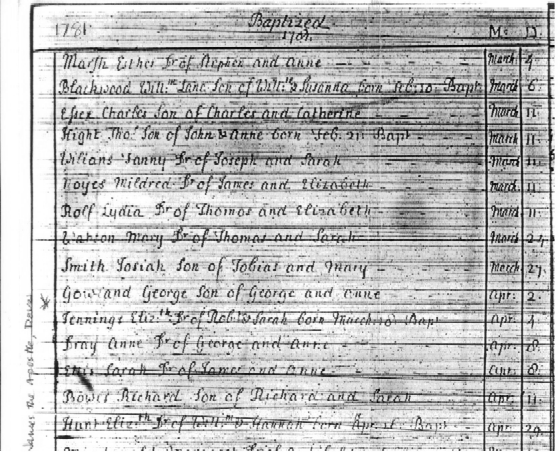 1781 Baptized 1781 Mo D
Marsh Esther Dr of Stephen and Anne March 4
Blackwood Will:m Lane Son of Will:m & Susanna born Feb: 10: Bapt March 6
Essex Charles Son of Charles and Catherine March 11
Hight Tho: Son of John & Anne born Feb. 21: Bapt March 11
Wilians Fanny Dr of Joseph and Sarah March 11
Noyes Mildred Dr of James and Elizabeth March 11
Rolf Lydia Dr of Thomas and Elizabeth March 11
Watson Mary Dr of Thomas and Sarah March 24
Smith Josiah Son of Tobias and Mary March 27
George Son of George and Anne Apr: 2
Jennings Eliz:th Dr of Rob:t & Sarah born March 10 Bapt Apr: 4
Bray Anne Dr of George and Anne Apr: 8
Ellis Sarah Dr of James and Anne Apr: 8
Bower Richard Son of Richard and Sarah Apr: 11
Hunt Eliz:th Dr of Will:m & Hannah born Apr Bapt Apr: 29
the Apostle